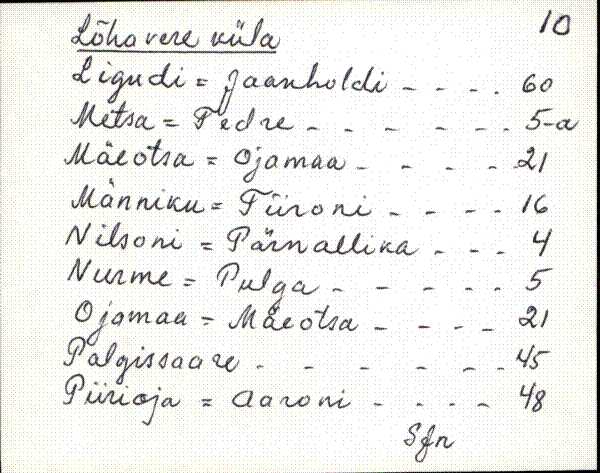 10
Lõhavere küla
Ligudi = Jaanholdi - - - . 60
Metsa = Tedre - - - - - - 5-a
Mäeotsa = Ojamaa - - - - 21
Männiku = Tiironi - - - - 16
Nilsoni = Pärnallika - - - 4
Nurme = Pulga - - - - - 5
Ojamaa = Mäeotsa - - - - 21
Palgissaare - - - - - - 45
Piirioja = Aaroni - - - - 48